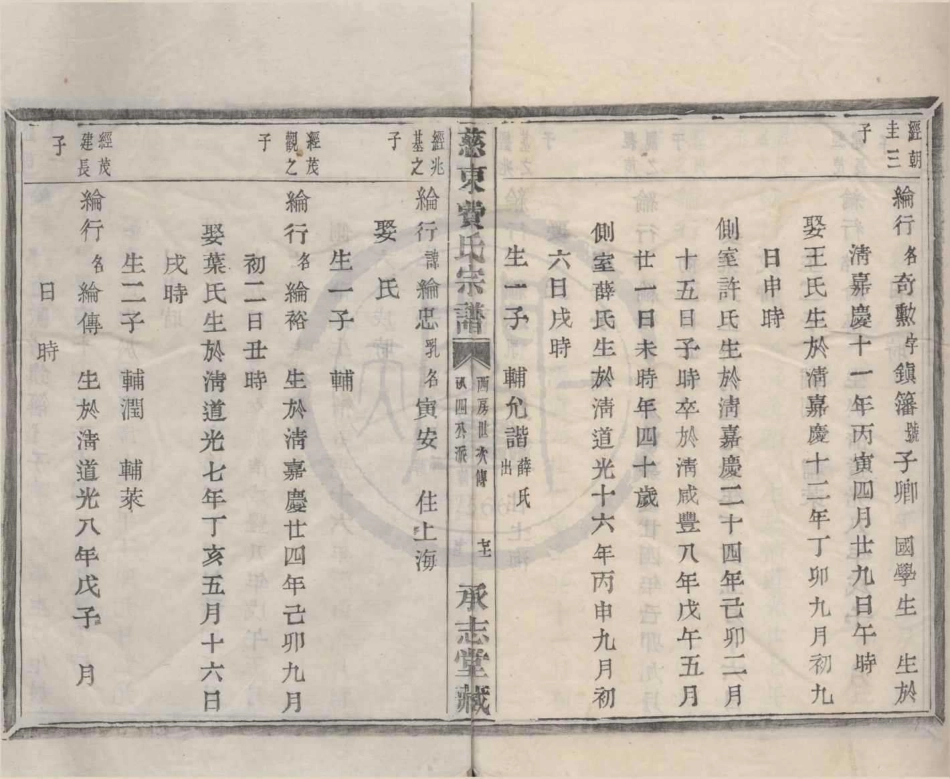 經朝
圭三
子
綸行名奇勲字鎮籓號子卿 國學生 生於
淸嘉慶十一年丙寅四月廿九日午時
娶王氏生於淸嘉慶十二年丁卯九月初九
日申時
側室許氏生於淸嘉慶二十四年己卯二月
十五日子時卒於淸咸豐八年戊午五月
廿一日未時年四十歲
側室薛氏生於淸道光十六年丙申九月初
六日戌時
生一子 輔允諧薛氏出
慈東費氏宗譜
西房世次傳
派
承志堂藏
經兆
基之
子
綸行諱綸忠乳名寅安 住上海
娶 氏
生一子 輔
經茂
觀之
子
綸行名綸裕 生於淸嘉慶廿四年己卯九月
初二日丑時
娶葉氏生於淸道光七年丁亥五月十六日
戌時
生二子 輔潤 輔萊
經茂
建長
子
綸行名綸傳 生於淸道光八年戊子 月
日 時